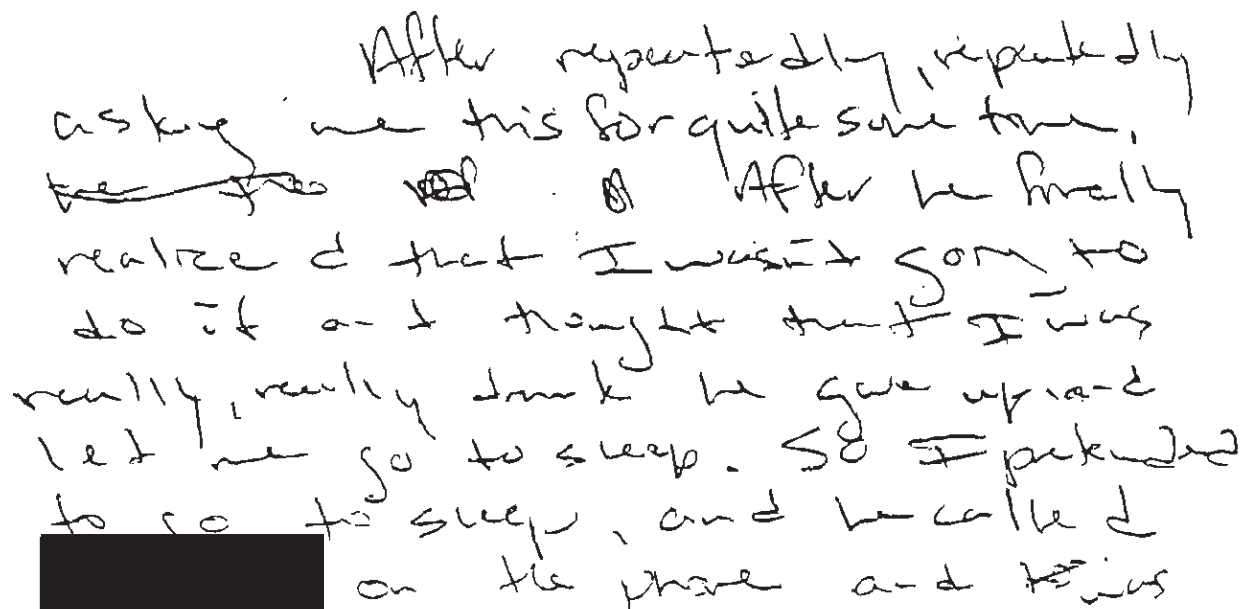 After repeatedly, repeatedly
asking me this for quite some time,
After he finally
realized that I wasn't going to
do it and thought that I was
really, really drunk he gave up and
let me go to sleep. So I pretended
to go to sleep, and he called
on the phone and was